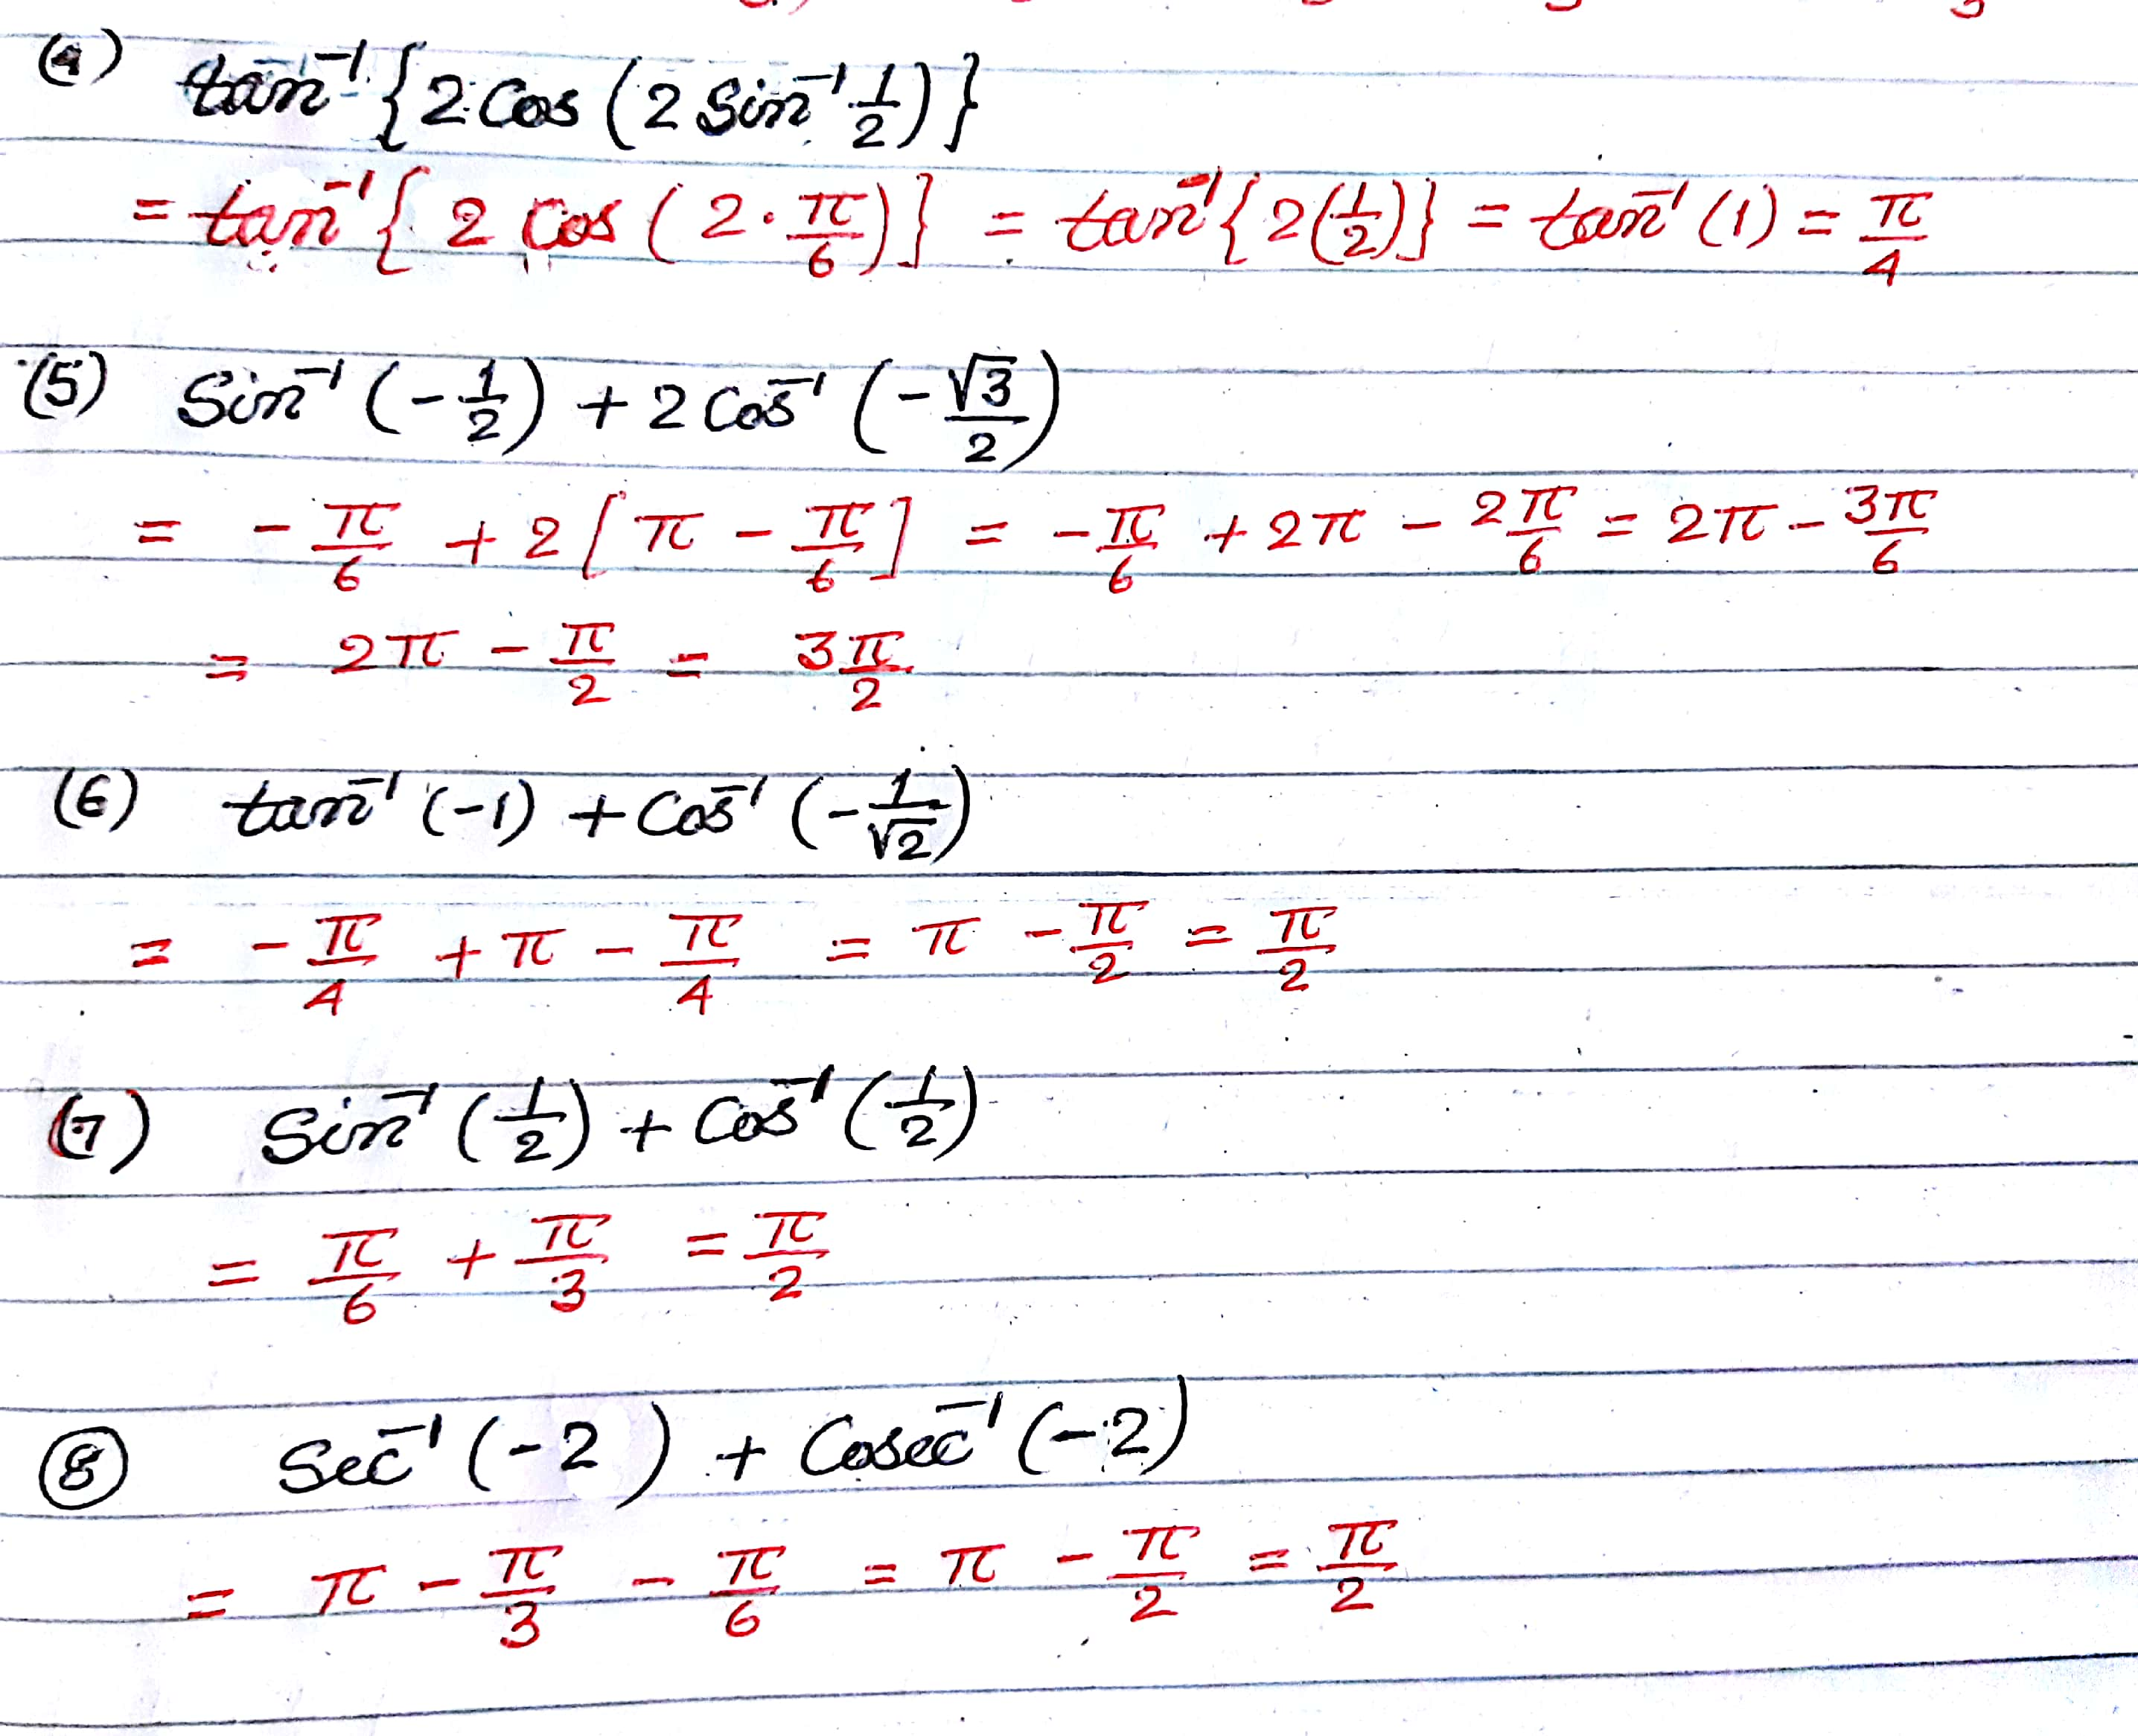 (4) tan⁻¹{2 Cos (2 Sin⁻¹ 1/2)}
= tan⁻¹{2 Cos (2 · π/6)} = tan⁻¹{2(1/2)} = tan⁻¹(1) = π/4
(5) Sin⁻¹(-1/2) + 2 Cos⁻¹(-√3/2)
= -π/6 + 2[π - π/6] = -π/6 + 2π - 2π/6 = 2π - 3π/6
= 2π - π/2 = 3π/2
(6) tan⁻¹(-1) + Cos⁻¹(-1/√2)
= -π/4 + π - π/4 = π - π/2 = π/2
(7) Sin⁻¹(1/2) + Cos⁻¹(1/2)
= π/6 + π/3 = π/2
⑧ Sec⁻¹(-2) + Cosec⁻¹(-2)
= π - π/3 - π/6 = π - π/2 = π/2